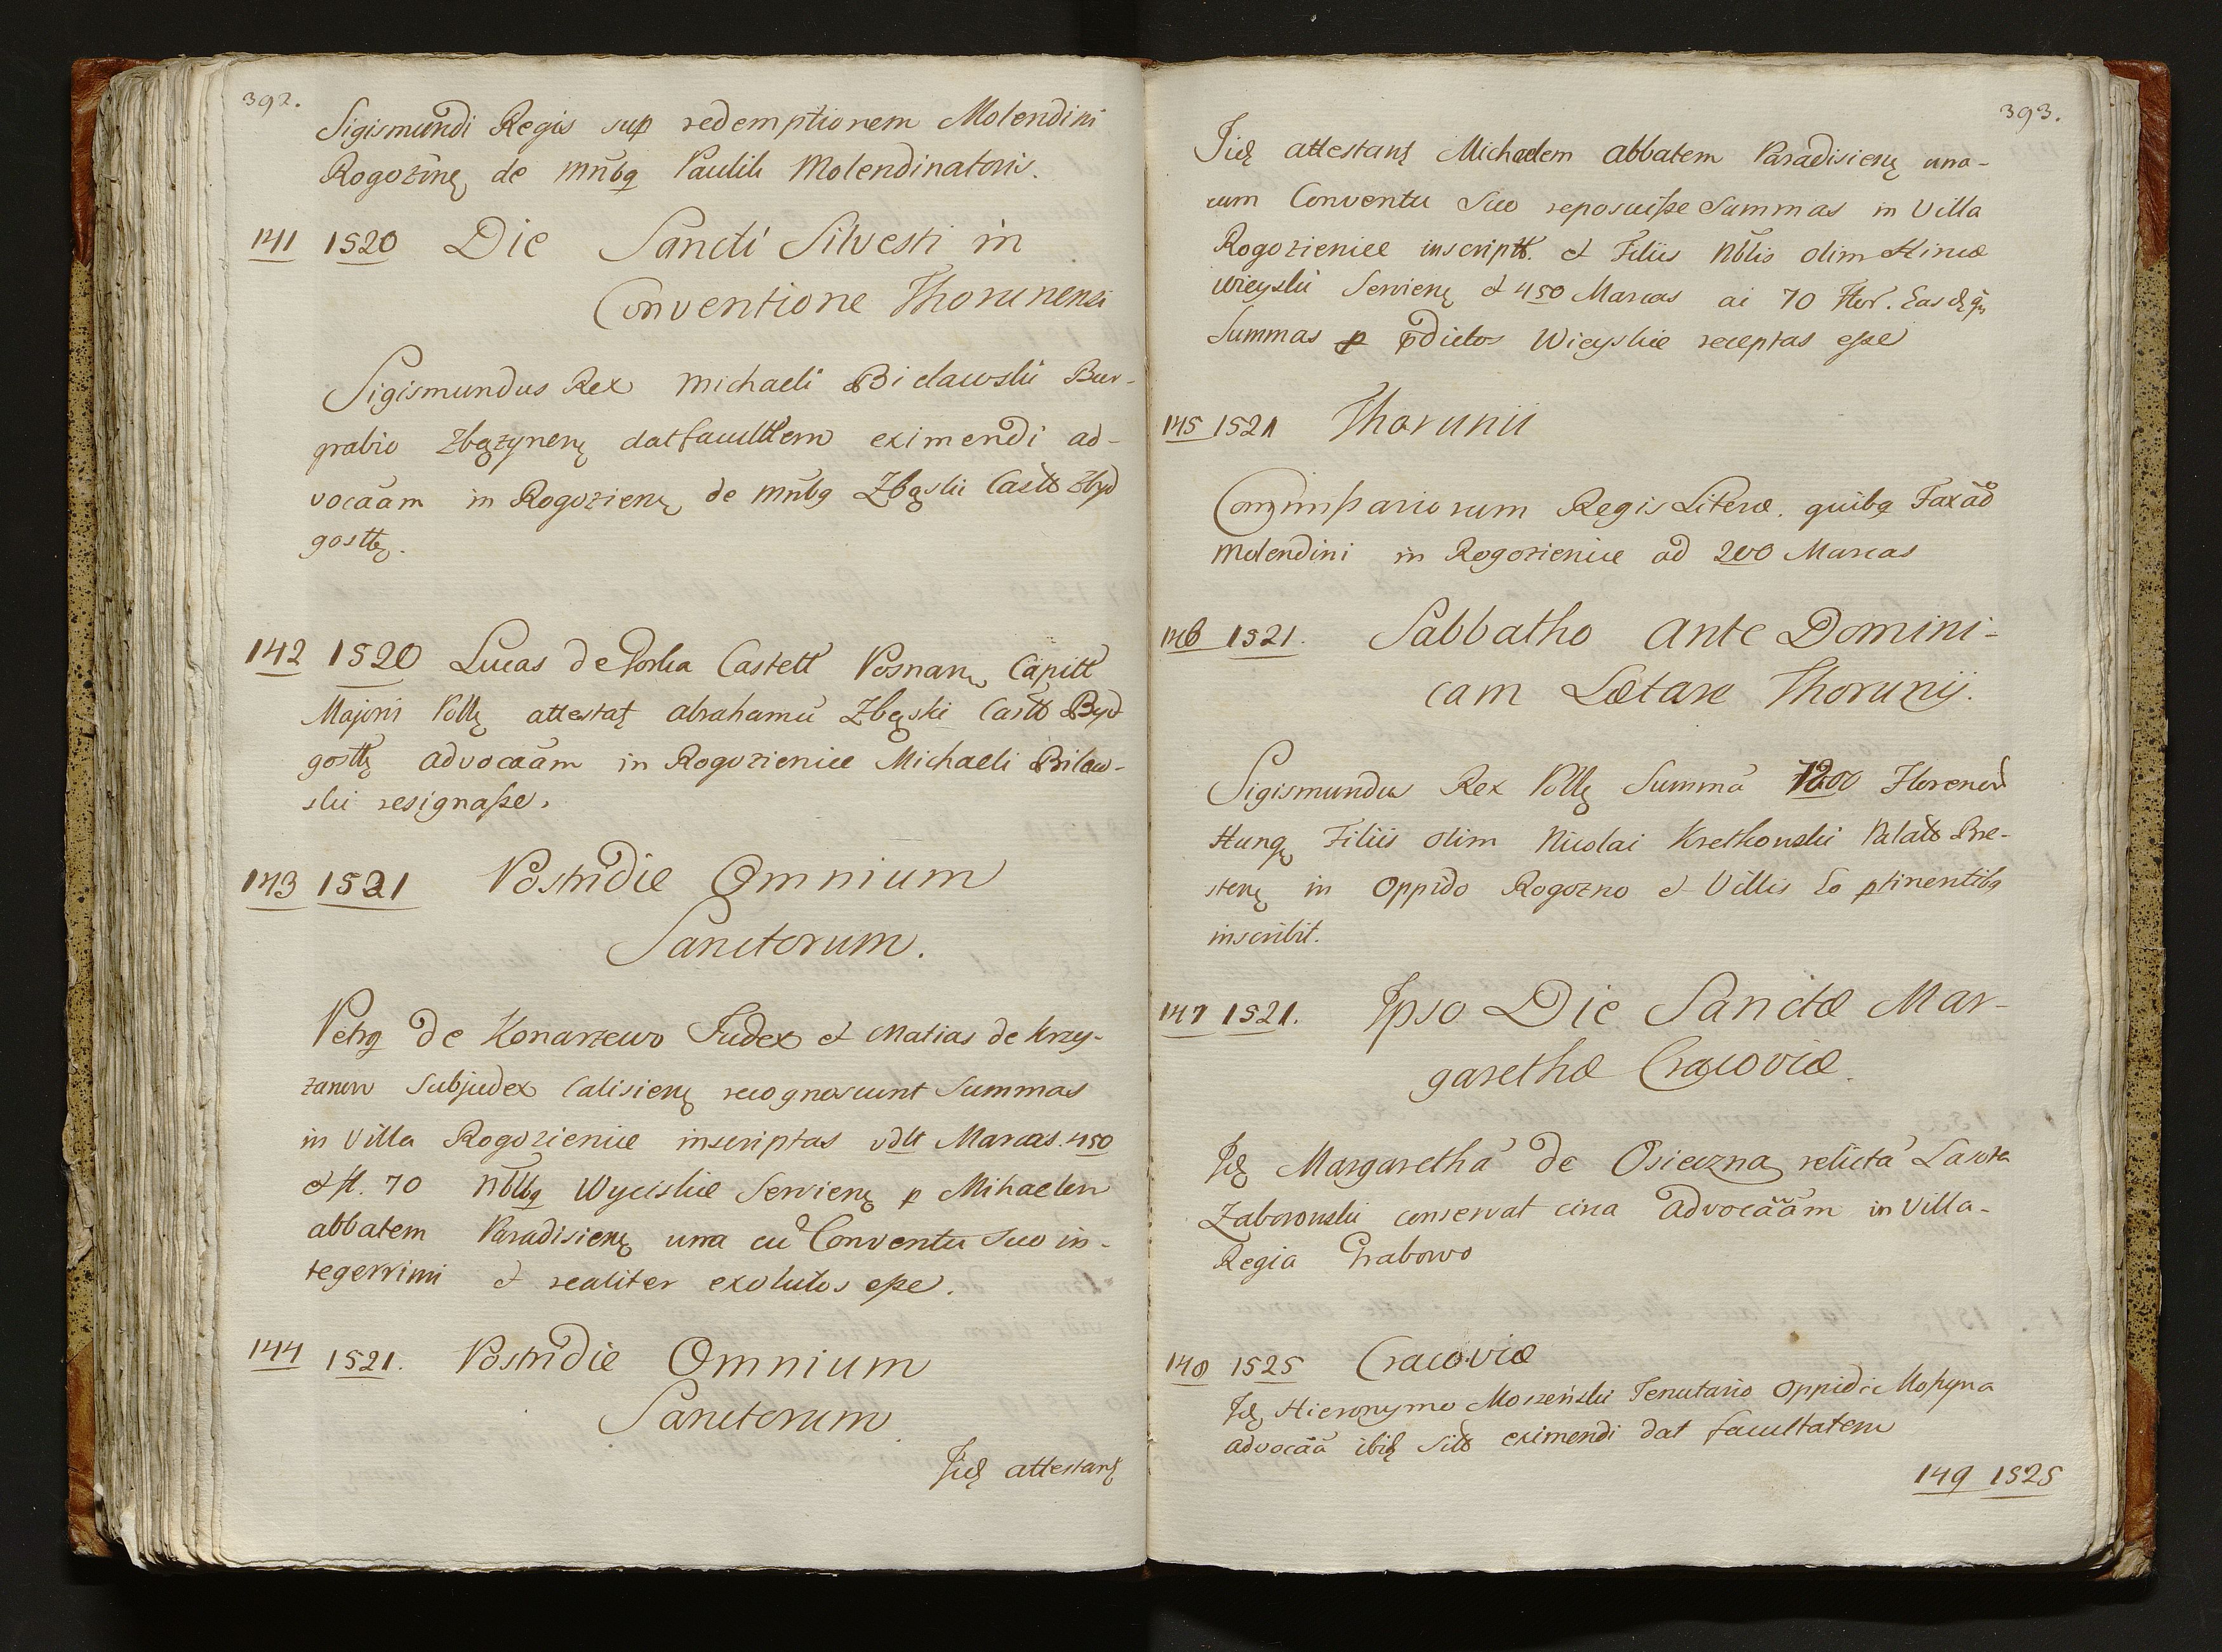 392.
Sigismundi Regis sup redemptionem Molendini
Rogozinę de mñbq Paulili Molendinatoris.
141 1520 Die Sancti Silvesti in
Conventione Thorunensi
Sigismundus Rex Michaeli Bielawski Bur-
grabio Zbązynenę dat facultt̃em eximendi ad-
vocãam in Rogozienę de mñbq Zbąski Castt̃ Byd
gosttę.
142 1520 Lucas de Gorka Castell Posnanę Capitt̃
Majoris Pollę attestatę Abrahamũ Zbąski Castt̃ Byd
gosttę advocãam in Rogozienice Michaeli Bilaw-
ski resignaße.
143 1521 Postridie Omnium
Sanctorum.
Petrq de Konarzewo Judex et Matias de Krzy-
zanow Subjudex Calisienę recognoscunt Summas
in Villa Rogozienice inscriptas vdlt Marcas. 450
et fl. 70 Nb̃lbq Wyciskie Servienę p Mihaelem
abbatem Paradisienę una cũ Conventu suo in-
tegerrimi et realiter exolutos eße.
144 1521. Postridie Omnium
Sanctorum
Iidę attestantę
393.
Iidę attestantę Michaelem abbatem Paradisienę una-
cum Conventu Suo reposuiße Summas in Villa
Rogozienice inscriptt̃. et Filiis Nb̃lis olim
Wieyski Servienę et 450 Marcas ai 70 Flor. Easdęqę
Summas p p̃dictos Wieyskie receptas eße
145 1521 Thorunii
Commißariorum Regis Literæ. quibq Taxaõ
Molendini in Rogozienice ad 200 Marcas
146 1521. Sabbatho Ante Domini-
cam Lætare Thorunij.
Sigismundus Rex Pollę Summã 1200 Florenor̃
Hungę Filiis olim Nicolai Kretkowski Palatt̃ Bre-
stenę in Oppido Rogozno et Villis Eo ptinentibq
inscribit.
147 1521. Ipso Die Sanctæ Mar-
garethæ Cracoviæ.
Idę Margarethã de Osieczna relictã Lasota
Zaborowski conservat circa Advocãam in Villa-
Regia Grabowo
148 1525 Cracoviæ
Idę Hieronymo Moszeński Tenutario Oppidi Moßyna
advocãã ibidę Sitt̃ eximendi dat facultatem
149 1525